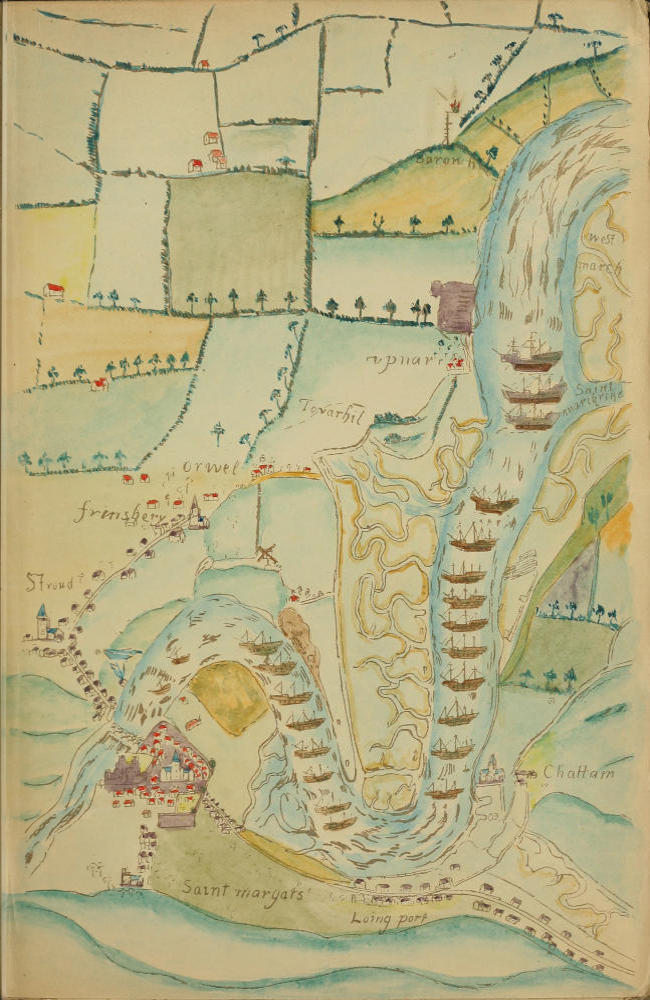 Baron hil
west
march
Saint
upnar
Tovarhil
orwel
frensbery
Stroud
Chattam
Saint margats
Loing port